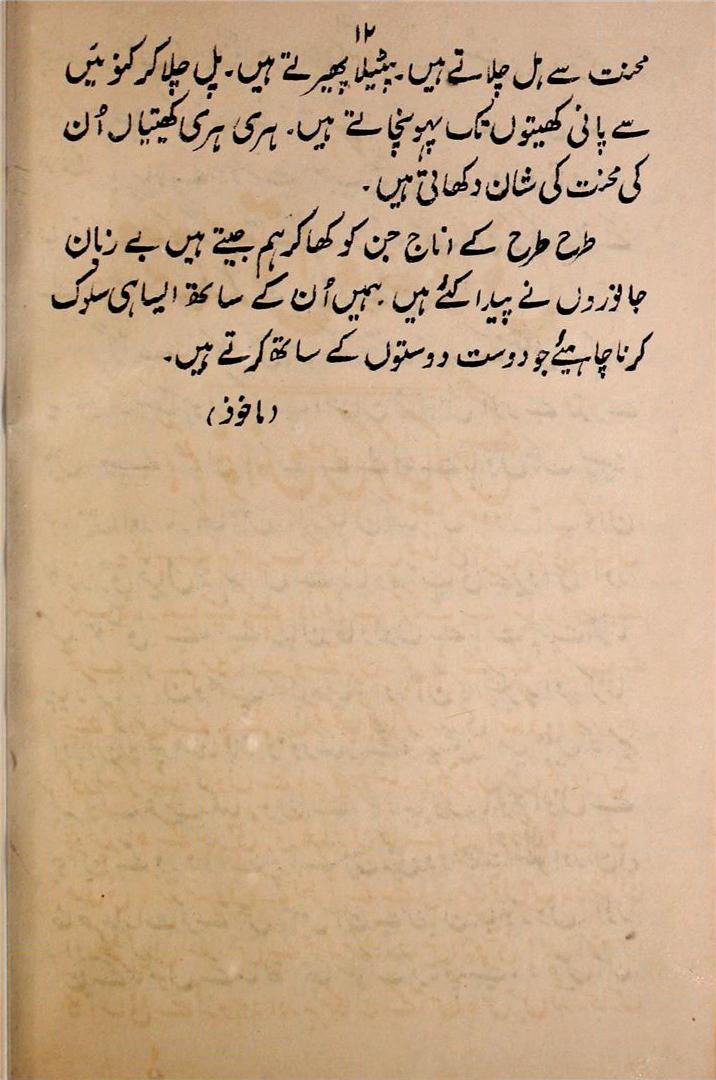 ۱۲
محنت سے ہل چلاتے ہیں۔ پٹیلا پھیرتے ہیں۔ پل چلا کر کنوئیں
سے پانی کھیتوں تک پہونچاتے ہیں۔ ہری ہری کھیتیاں اُن
کی محنت کی شان دکھاتی ہیں۔
طرح طرح کے اناج جن کو کھا کر ہم جیتے ہیں بے زبان
جانوروں نے پیدا کئے ہیں ہمیں اُن کے ساتھ ایسا ہی سلوک
کرنا چاہیئے جو دوست دوستوں کے ساتھ کرتے ہیں۔
(ماخوذ)